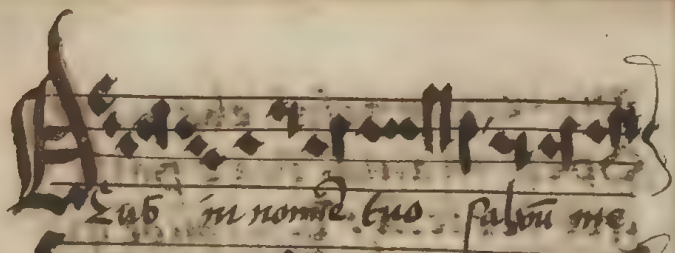 DEus in nomīe tuo saluū me